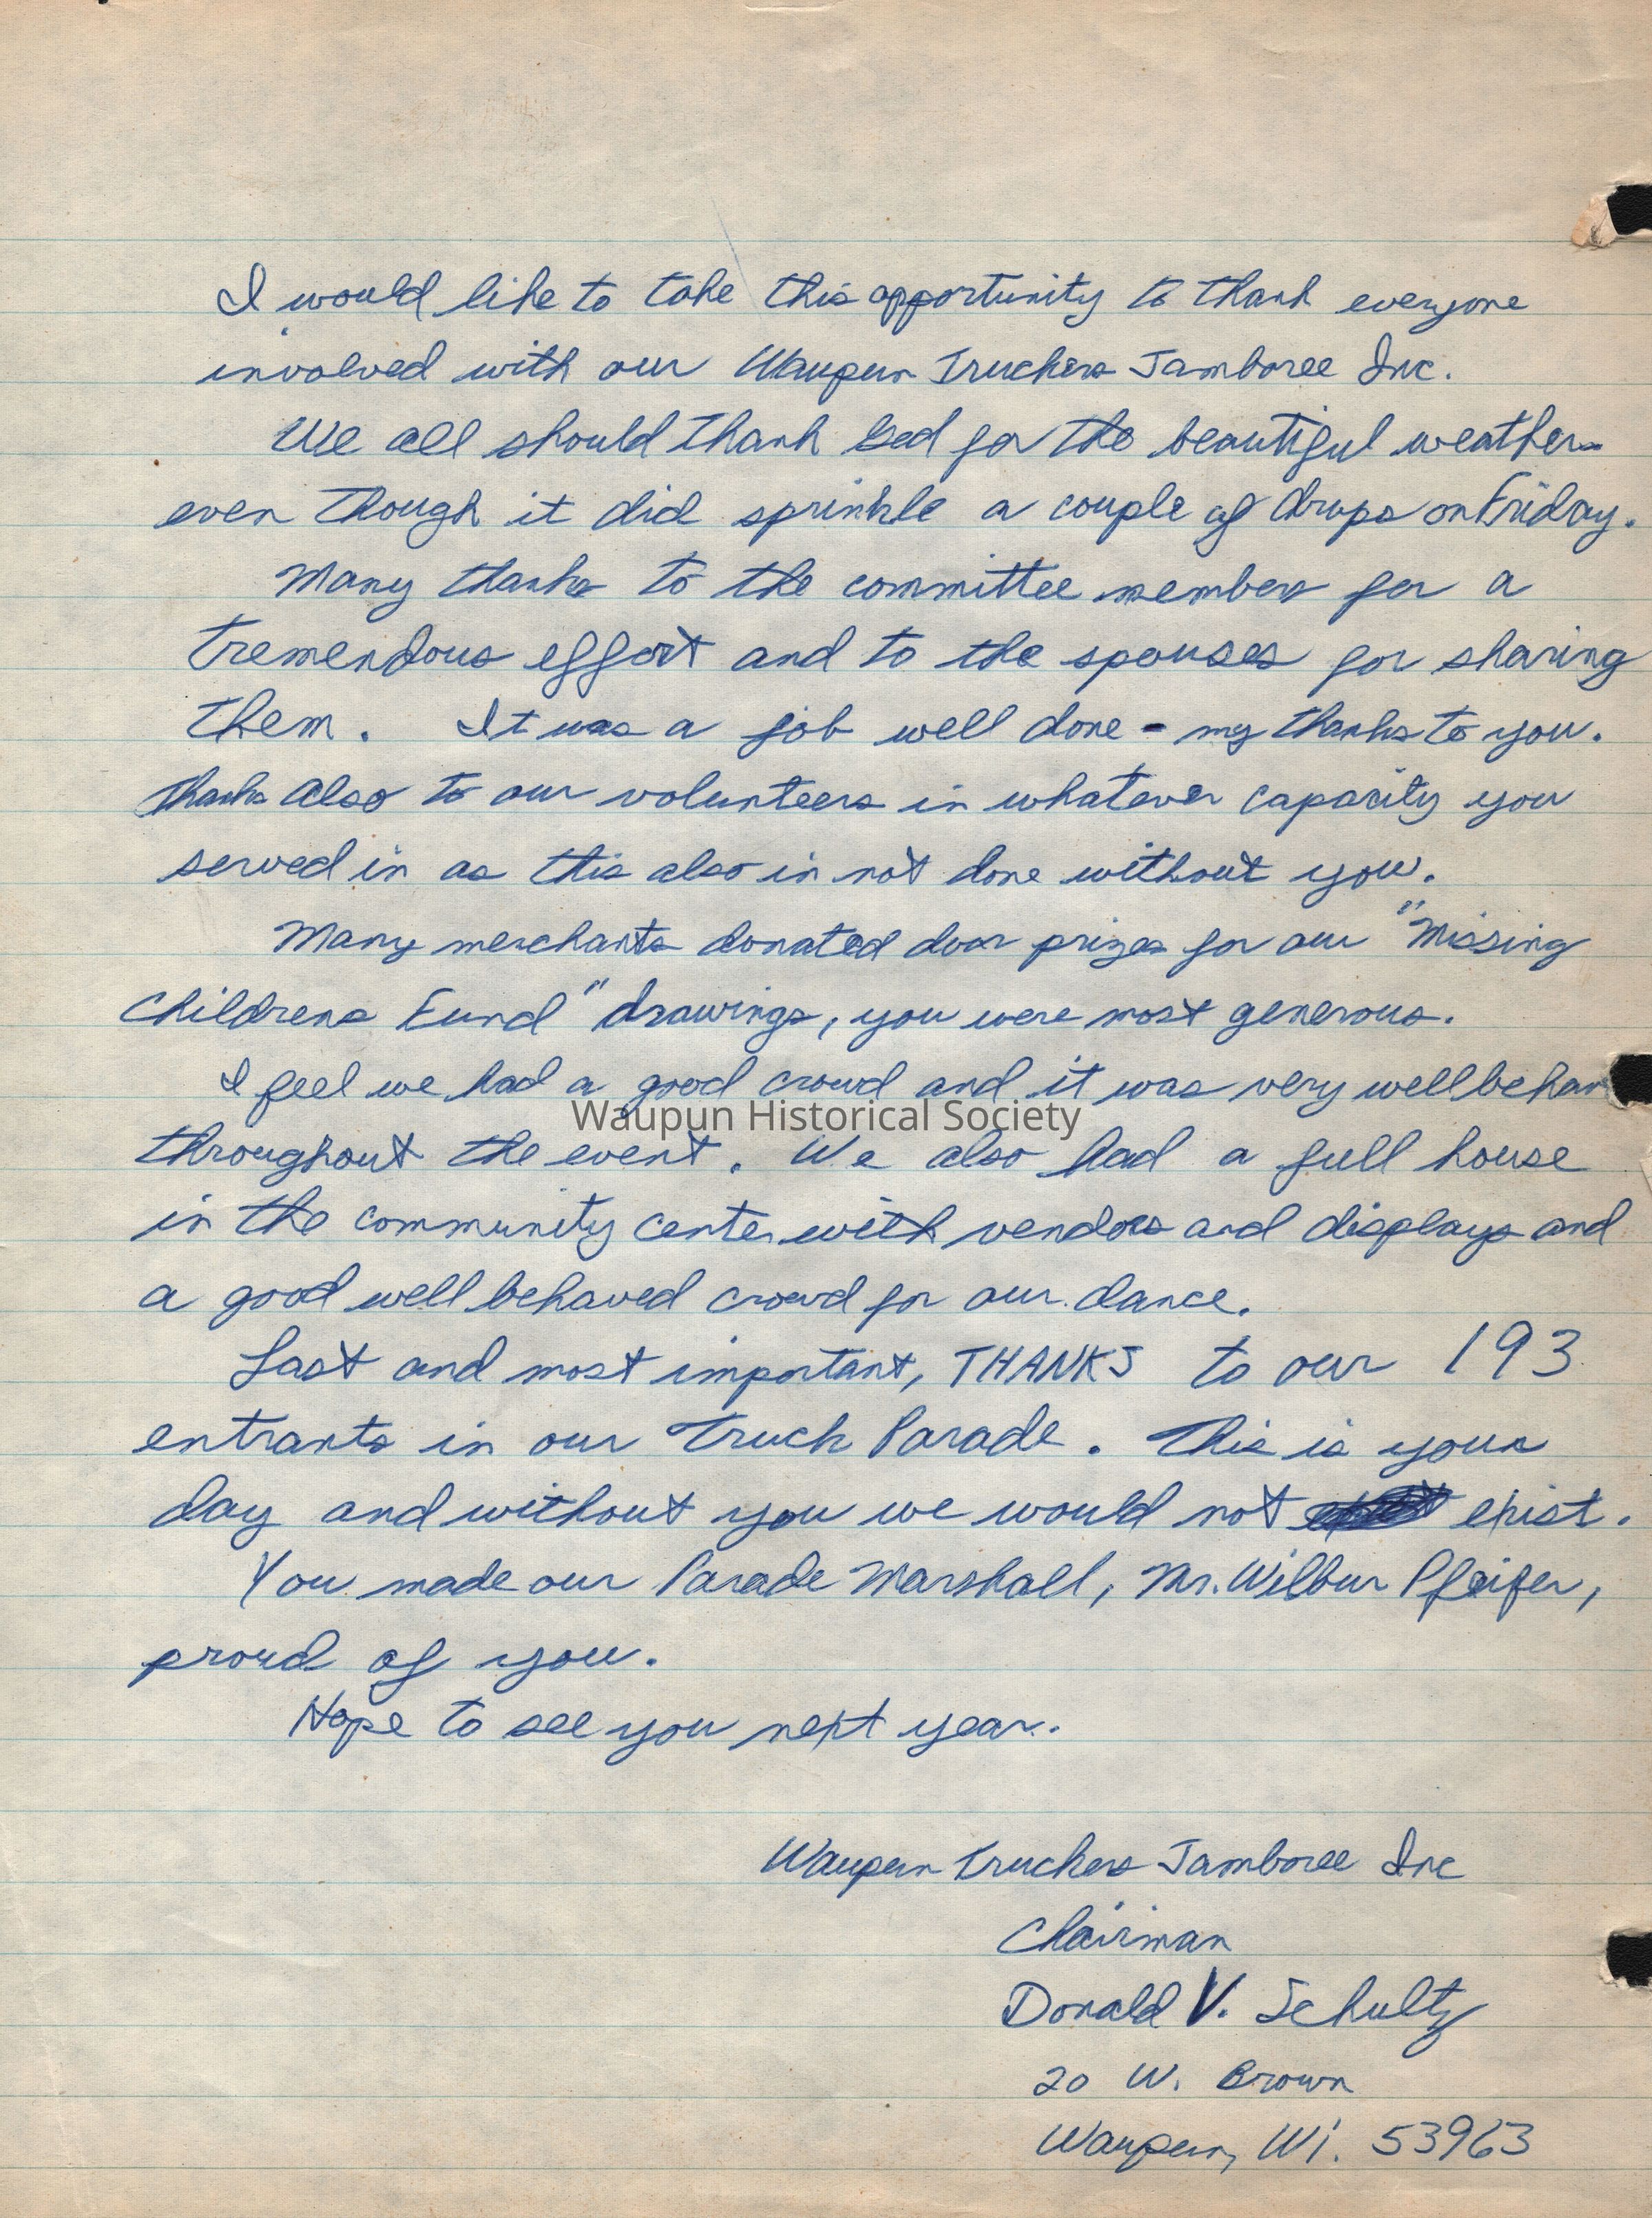 I would like to take this opportunity to thank everyone
involved with our Waupun Truckers Jamboree Inc.
We all should thank God for the beautiful weather
even though it did sprinkle a couple of drops on Friday.
Many thanks to the committee members for a
tremendous effort and to the spouses for sharing
them. It was a job well done - my thanks to you.
Thanks also to our volunteers in whatever capacity you
served in as this also is not done without you.
Many merchants donated door prizes for our "Missing
Childrens Fund" drawings, you were most generous.
I feel we had a good crowd and it was very well behav
Waupun Historical Society
throughout the event. We also had a full house
in the community center with vendors and displays and
a good well behaved crowd for our dance.
Last and most important, THANKS to our 193
entrants in our Truck Parade. This is your
day and without you we would not exist.
You made our Parade Marshall, Mr. Wilbur Pfeifer,
proud of you.
Hope to see you next year.
Waupun Truckers Jamboree Inc
Chairman
Donald V. Schultz
20 W. Brown
Waupun, Wi. 53963